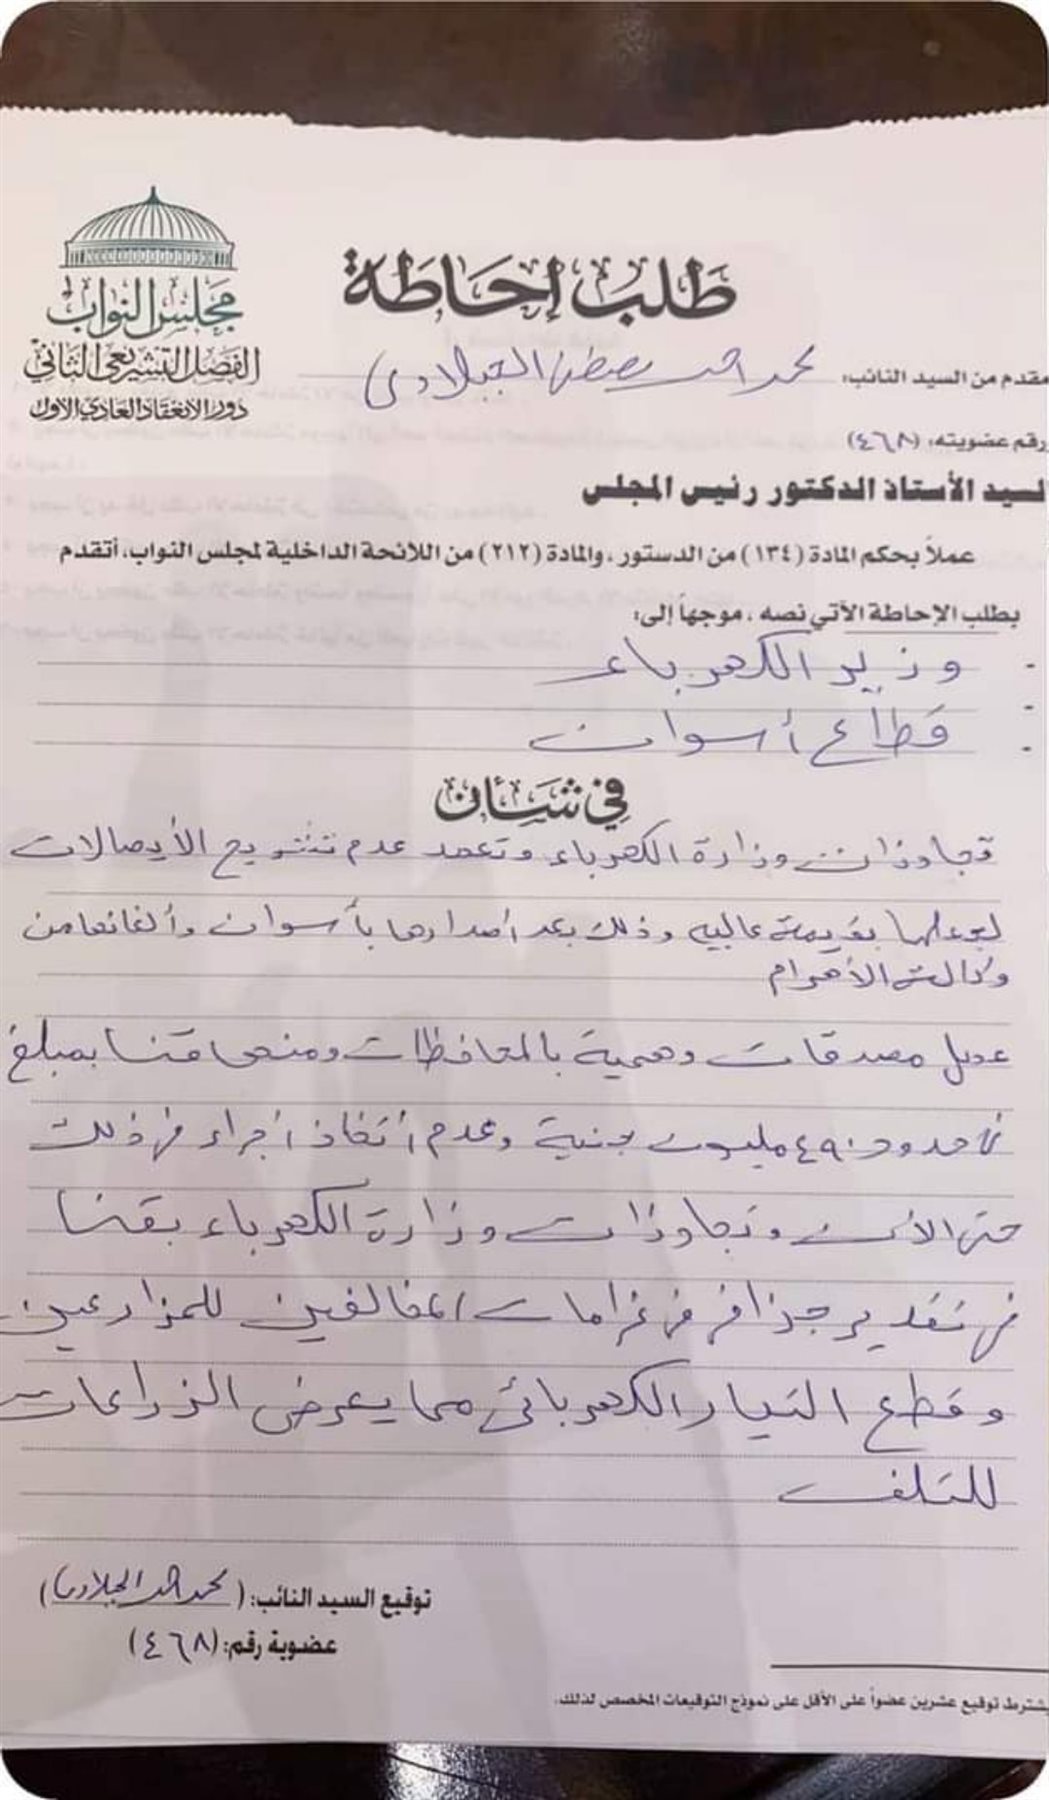 مجلس النواب
الفصل التشريعى الثانى
دور الانعقاد العادى الأول
طلب إحاطة
مقدم من السيد النائب: محمد احمد مصطفى الجبلاوى
رقم عضويته: (٤٦٨)
لسيد الأستاذ الدكتور رئيس المجلس
عملاً بحكم المادة (١٣٤) من الدستور، والمادة (٢١٢) من اللائحة الداخلية لمجلس النواب، أتقدم
بطلب الإحاطة الآتي نصه، موجهاً إلى:
- وزير الكهرباء
- قطاع أسوان
في شأن
تجاوزات وزارة الكهرباء وتعمد عدم الأيصالات
لجعلها بقيمة عاليه وذلك بعد أصدارها بأسوان وألغائها من
وكالة الأهرام
عمل مصدقات وهمية بالمحافظات ومنها قنا بمبلغ
فى حدود ٤٩٠ مليون جنية وعدم أتخاذ أجراء فى ذلك
حتى الأن وتجاوزات وزارة الكهرباء بقنا
فى تقدير جزافى فى غرامات المخالفين للمزارعين
وقطع التيار الكهربائى مما يعرض الزراعات
للتلف
توقيع السيد النائب: (محمد احمد الجبلاوى)
عضوية رقم: (٤٦٨)
يشترط توقيع عشرين عضواً على الأقل على نموذج التوقيعات المخصص لذلك.